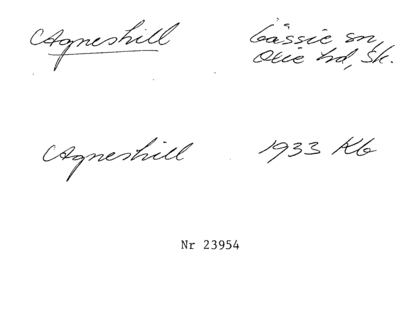 Agneshill Gässie sn,
Orie hd, Sk.
Agneshill 1933 Kb
Nr 23954